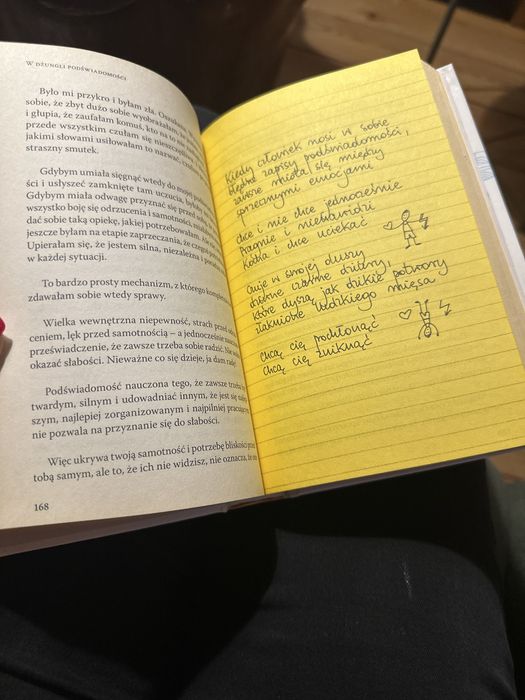 W DŻUNGLI PODŚWIADOMOŚCI
Było mi przykro i byłam zła.
sobie, że zbyt dużo sobie wyobrażałam,
i głupia, że zaufałam komuś, kto na to nie
przede wszystkim czułam się nieszczęśliwa
jakimi słowami usiłowałam to nazwać,
straszny smutek.
Gdybym umiała sięgnąć wtedy do mojej
ści i usłyszeć zamknięte tam uczucia,
Gdybym miała odwagę przyznać się przed
wszystko boję się odrzucenia i samotności,
dać sobie taką opiekę, jakiej potrzebowałam. Ale
jeszcze byłam na etapie zaprzeczania, że czegoś
Upierałam się, że jestem silna, niezależna i
w każdej sytuacji.
To bardzo prosty mechanizm, z którego
zdawałam sobie wtedy sprawy.
Wielka wewnętrzna niepewność, strach przed
ceniem, lęk przed samotnością – a jednocześnie
przeświadczenie, że zawsze trzeba sobie radzić. Nie
okazać słabości. Nieważne co się dzieje, ja dam radę
Podświadomość nauczona tego, że zawsze trzeba
twardym, silnym i udowadniać innym, że jest się
szym, najlepiej zorganizowanym i najpilniej
nie pozwala na przyznanie się do słabości.
Więc ukrywa twoją samotność i potrzebę bliskości przed
tobą samym, ale to, że ich nie widzisz, nie oznacza, że
168
Kiedy człowiek nosi w sobie
błędne zapisy podświadomości,
zawsze miota się między
sprzecznymi emocjami
chce i nie chce jednocześnie
Pragnie i nienawidzi
Kocha i chce uciekać
Czuje w swojej duszy
chórne czarne dziury,
które dyszą jak dzikie potwory
złaknione ludzkiego mięsa
chcą cię pochłonąć
chcą cię zniknąć